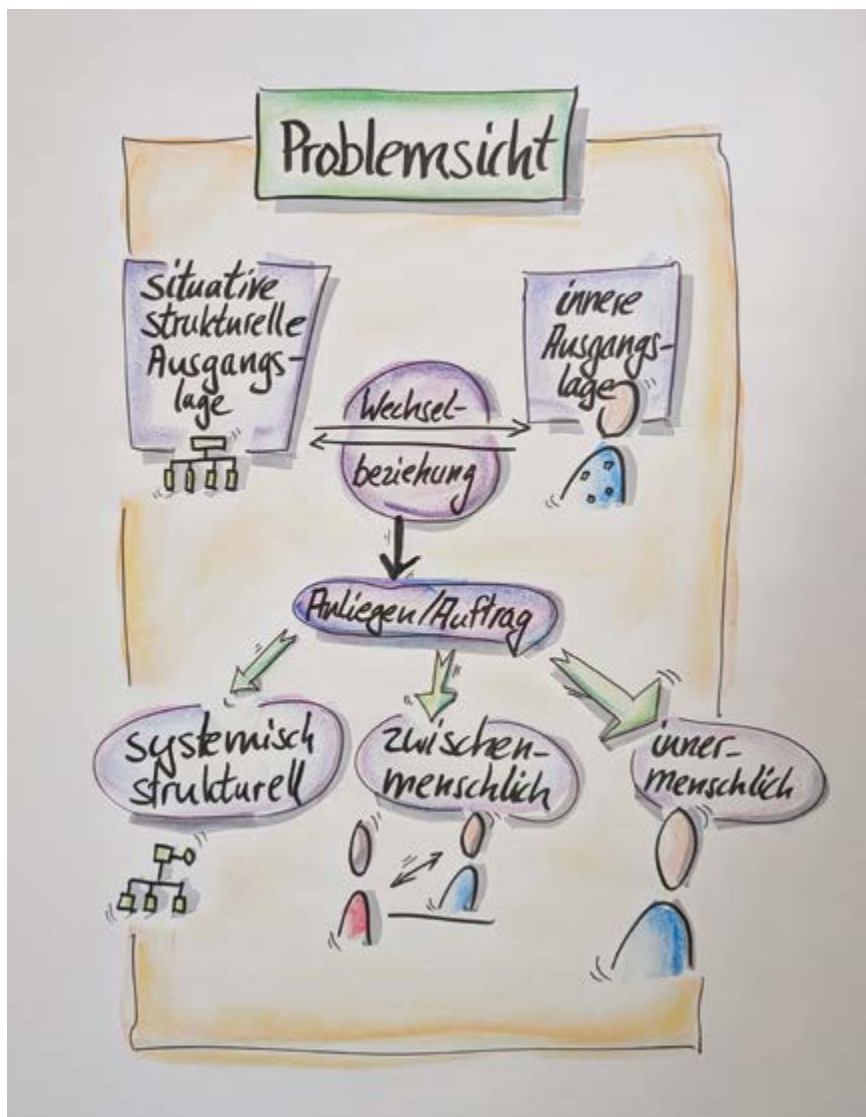 Problemsicht
situative
strukturelle
Ausgangs-
lage
innere
Ausgangs-
lage
Wechsel-
beziehung
Anliegen/Auftrag
systemisch
strukturell
zwischen-
menschlich
inner-
menschlich